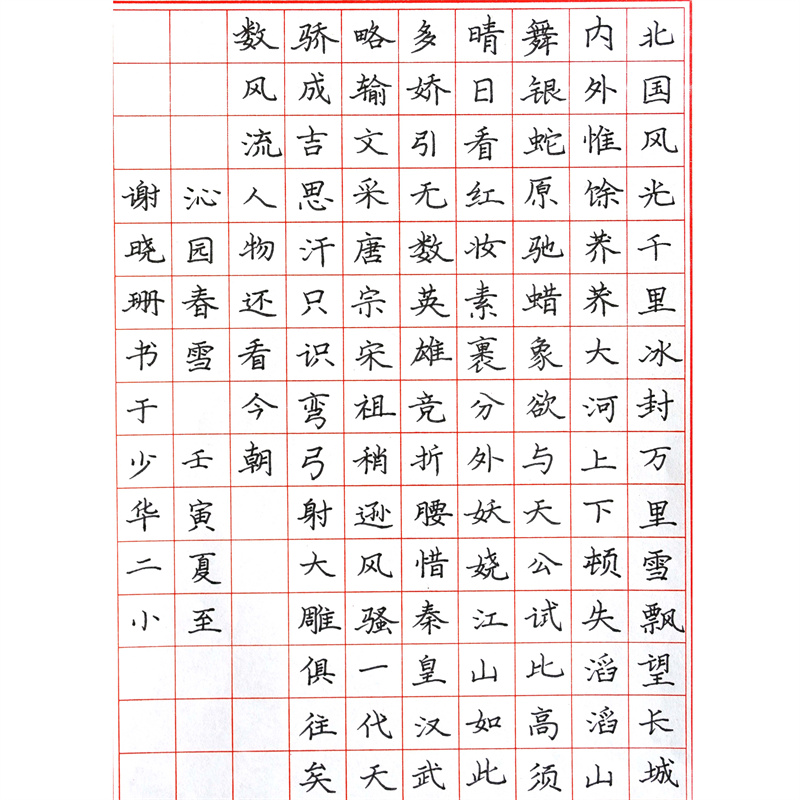 北国风光千里冰封万里雪飘望长城
内外惟馀莽莽大河上下顿失滔滔山
舞银蛇原驰蜡象欲与天公试比高须
晴日看红妆素裹分外妖娆江山如此
多娇引无数英雄竞折腰惜秦皇汉武
略输文采唐宗宋祖稍逊风骚一代天
骄成吉思汗只识弯弓射大雕俱往矣
数风流人物还看今朝
沁园春雪 壬寅夏至
谢晓珊书于少华二小